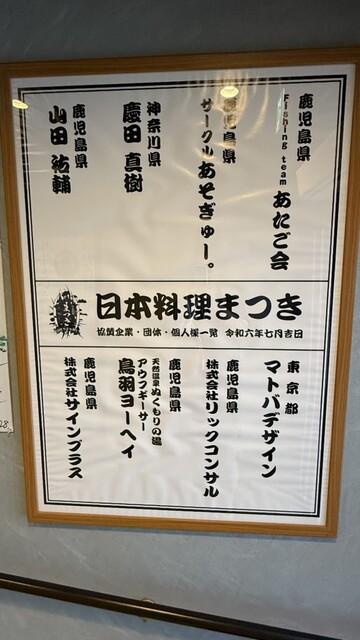 鹿児島県
Fishing team あたご会
鹿児島県
サークル あそぎゅー。
神奈川県
慶田 真樹
鹿児島県
山田 祐輔
日本料理まつき
協賛企業・団体・個人様一覧 令和六年七月吉日
東京都
マトバデザイン
鹿児島県
株式会社リックコンサル
鹿児島県
天然温泉ぬくもりの湯
アウフギーサー
鳥羽ヨーヘイ
鹿児島県
株式会社サインプラス